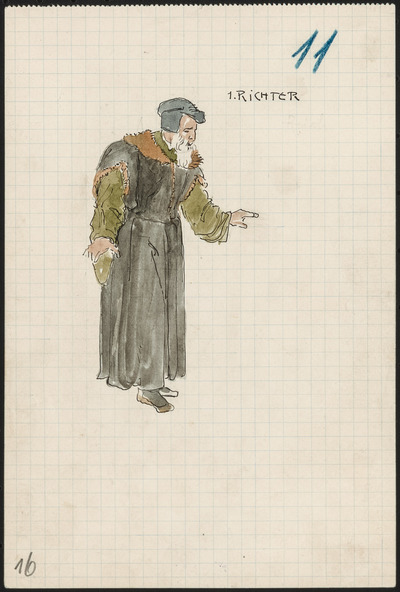 11
1. RICHTER
16